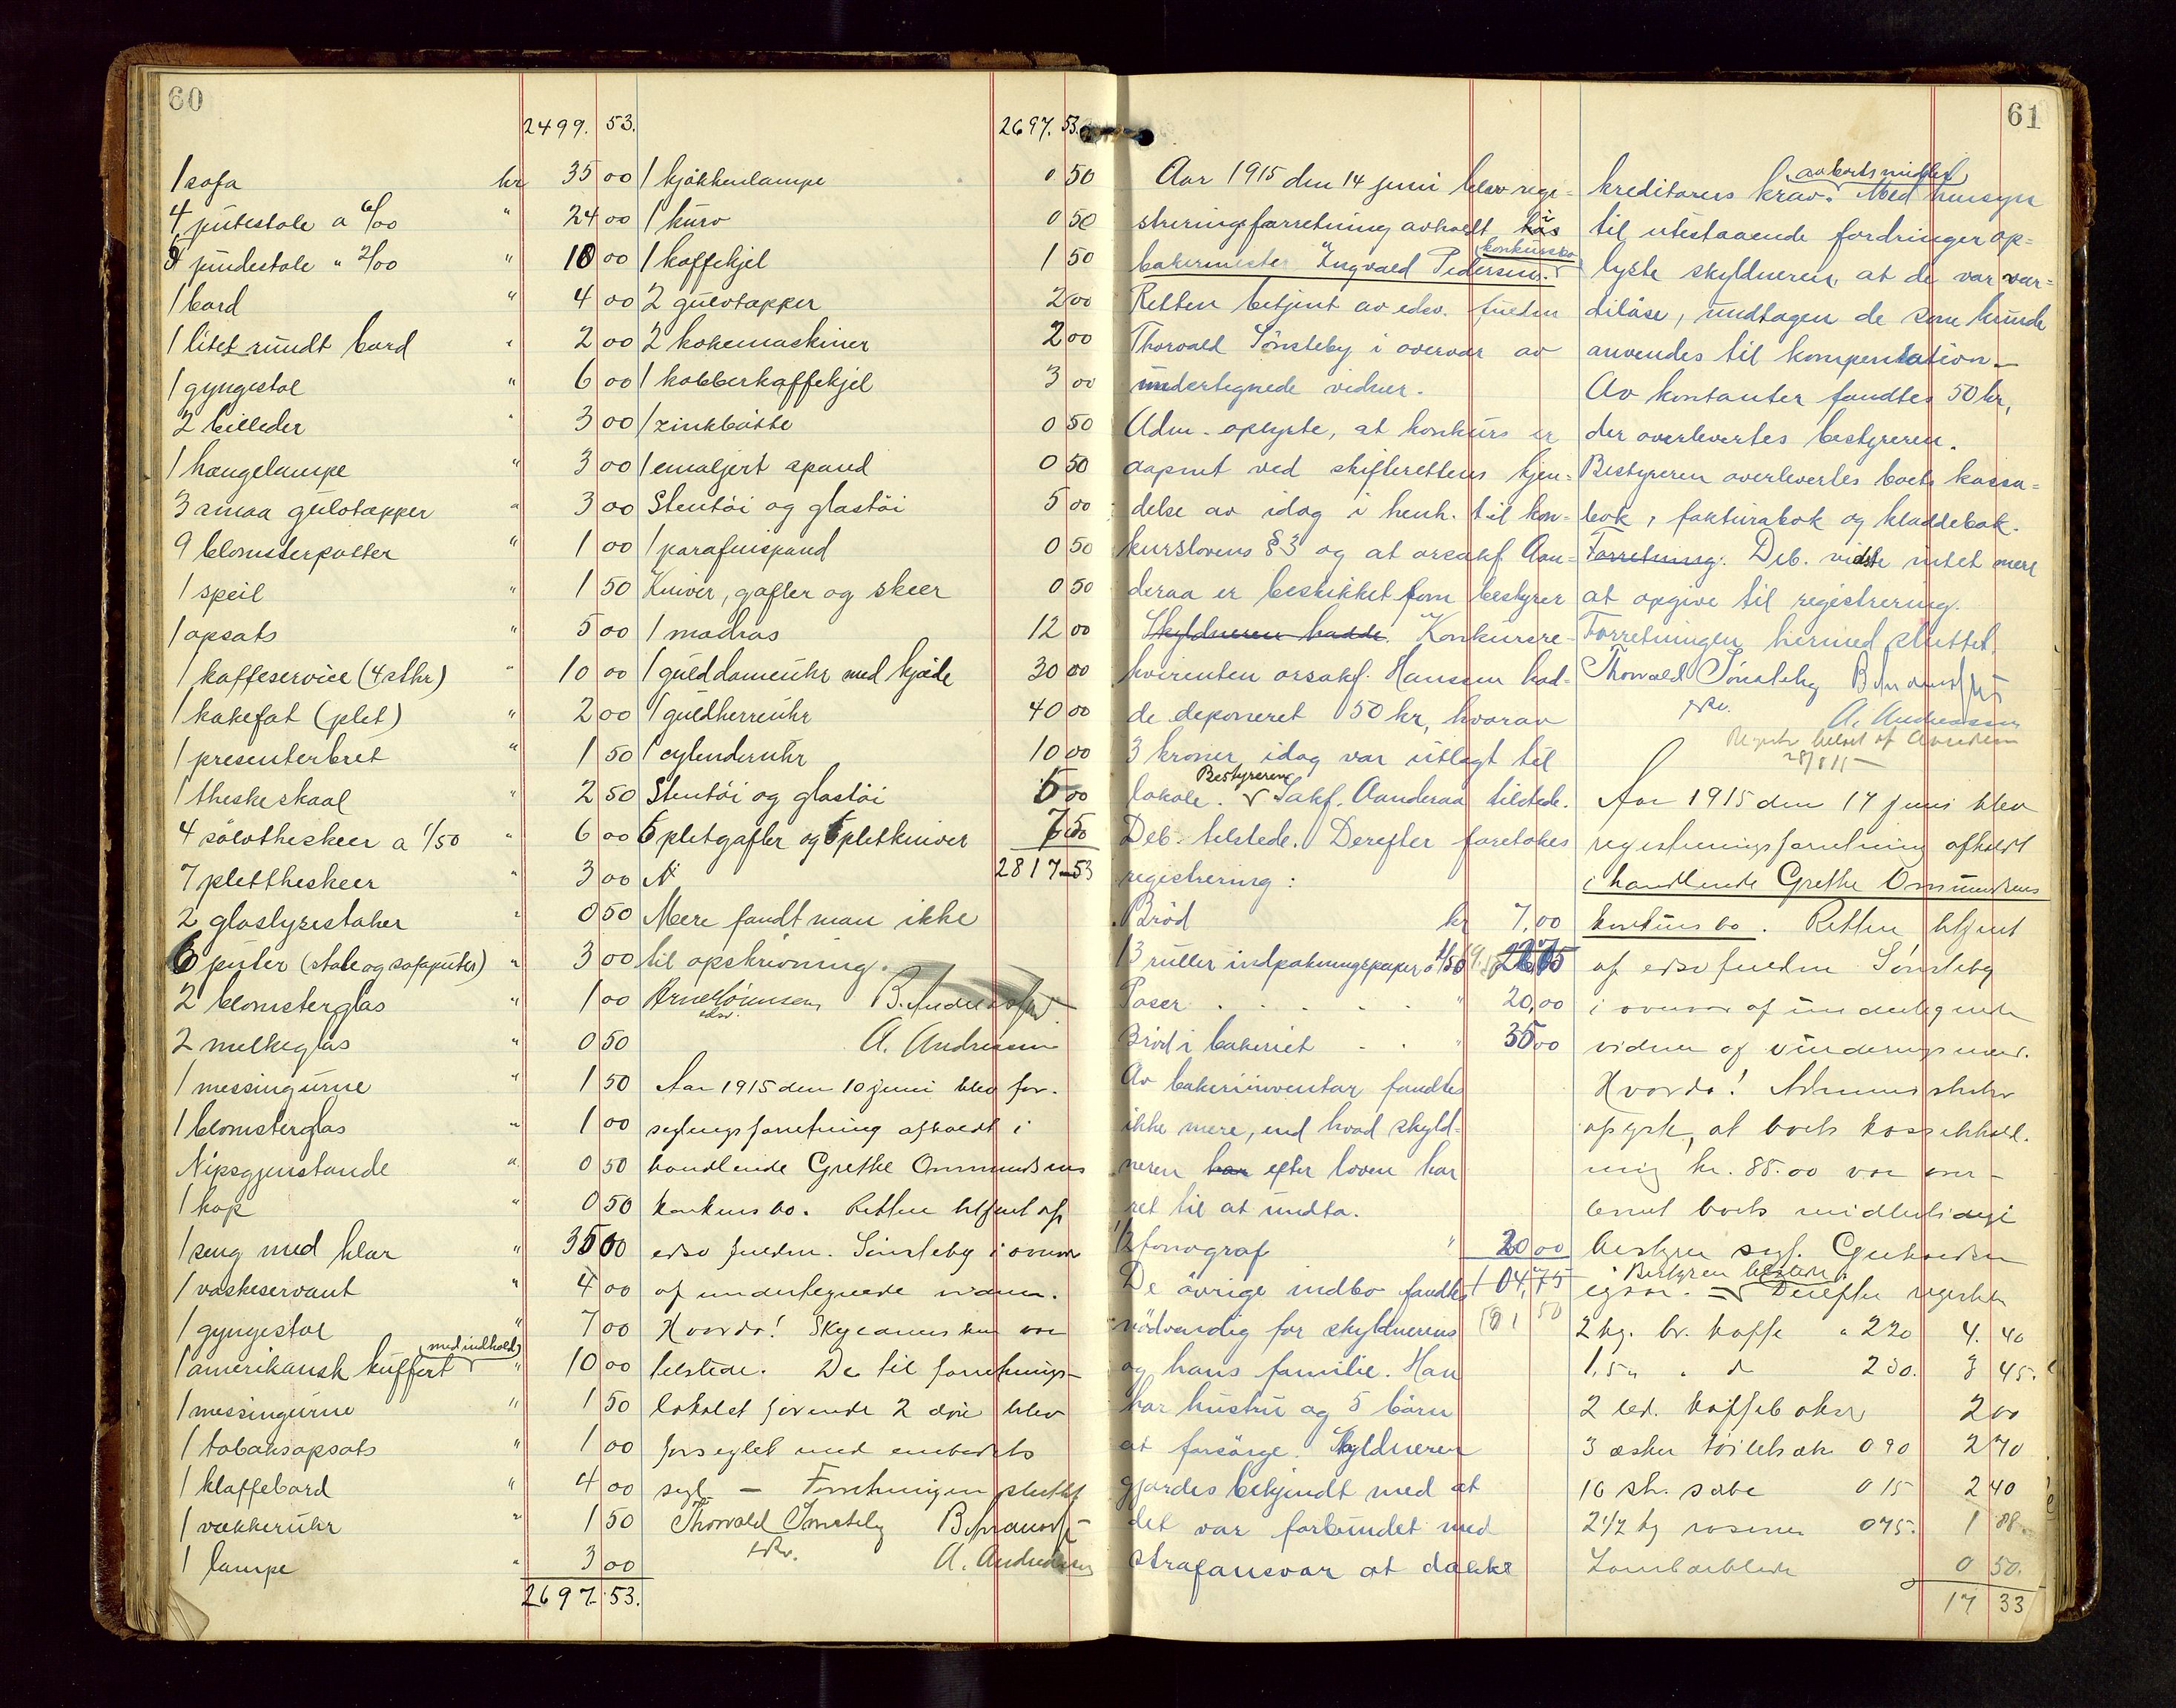 60
2499. 53.
1 sofa kr 35 00
4 putestole a 6/00 " 24 00
5 pindestole " 2/00 " 10 00
1 bord " 4 00
1 litet rundt bord " 2 00
1 gyngestol " 6 00
2 billeder " 3 00
1 hængelampe " 3 00
3 smaa gulvtæpper " 3 00
9 blomsterpotter " 1 00
1 speil " 1 50
1 opsats " 5 00
1 kaffeservice (4 stkr) " 10 00
1 kakefat (plet) " 2 00
1 presenterbret " 1 50
1 theskeskaal " 2 50
4 sölvtheskeer a 1/50 " 6 00
7 pletteskeer " 3 00
2 glaslysestaker " 0 50
6 puter (stole og sofaputer) " 3 00
2 blomsterglas " 1 00
2 melkeglas " 0 50
1 messingurne " 1 50
1 blomsterglas " 1 00
Nipsgjenstande " 0 50
1 kop " 0 50
1 seng med klær " 35 00
1 vaskeservant " 4 00
1 gyngestol " 7 00
1 amerikansk kuffert med indhold " 10 00
1 messingurne " 1 50
1 tobaksopsats " 1 00
1 klaffebord " 4 00
1 vækkeruhr " 1 50
1 lampe " 3 00
2697. 53.
2697. 53.
1 kjökkenlampe 0 50
1 kurv 0 50
1 kaffekjel 1 50
2 gulvtæpper 2 00
2 kokemaskiner 2 00
1 kobberkaffekjel 3 00
1 zinkbötte 0 50
1 emaljert spand 0 50
Stentöi og glastöi 5 00
1 parafinspand 0 50
Kniver, gafler og skeer 0 50
1 madras 12 00
1 gulddameuhr med kjæde 30 00
1 guldherreuhr 40 00
1 cylenderuhr 10 00
Stentöi og glastöi 5 00
6 pletgafler og 6 pletkniver
2817-53
Mere fandt man ikke
til opskrivning.
A. Andreassen
Aar 1915 den 10 juni blev for-
seglingsforretning afholdt i
handlende Grethe Ommundsens
konkursbo. Retten betjent af
edsv fuldm. Sönsteby i overvær
af undertegnede vidner.
Hvorda! Skyldneren var
tilstede. De til forretnings-
lokalet förende 2 döre blev
forseglet med embedets
segl - Forretningen sluttet
Thorvald Sönsteby
edsv.
A. Andreassen
61
Aar 1915 den 14 juni blev regi-
streringsforretning avholdt i
bakermester Ingvald Pedersens konkursbo
Retten betjent av edsv. fuldm
Thorvald Sönsteby i overvær av
undertegnede vidner.
Adm. oplyste, at konkurs er
aapnet ved skifterettens kjen-
delse av idag i henh. til kon-
kurslovens § 3 og at orsakf. Aan-
deraa er beskikket som bestyrer
Skyldneren hadde. Konkursre-
kvirenten orsakf. Hanssen had-
de deponeret 50 kr, hvorav
3 kroner idag var utlagt til
lokale. Bestyreren Sakf. Aanderaa tilstede.
Deb. tilstede. Derefter foretokes
registrering:
Bröd kr 7,00
13 ruller indpakningspapir
Poser " 20,00
Bröd i bakeriet " 35 00
Av bakeriinventar fandtes
ikke mere, end hvad skyld-
neren har efter loven har
ret til at undta.
1 fonograf " 20 00
De övrige indbo fandtes 104,75
nödvendig for skyldneren
og hans familie. Han
har hustru og 5 börn
at forsörge. Skyldneren
gjordes bekjendt med at
det var forbundet med
strafansvar at dække
kreditorers krav. Med hensyn
til utestaaende fordringer op-
lyste skyldneren, at de var vær-
dilöse, undtagen de som kunde
anvendes til kompensation.-
Av kontanter fandtes 50 kr,
der overlevertes bestyreren.
Bestyreren overlevertes boets kassa-
bok, fakturabok og kladdebok.
Forretning. Deb. vidste intet mere
at opgive til registrering.
Forretningen hermed sluttet.
Thorvald Sönsteby
edsv.
A. Andreassen
Aar 1915 den 14 juni blev
registreringsforretning afholdt
i handlende Grethe Ommundsens
konkursbo. Retten betjent
af edsv fuldm Sönsteby
i overvær af undertegnede
vidner og vurderingsmænd.
Hvorda! Administrator
oplyste, at boets kassebehold-
ning kr. 85.00 var over-
levert boets midlertidige
bestyrer sagf.
Derefter registrertes
2 kg. br. kaffe a 220 4. 40
1,5 " " 230. 3 45.
2 kaffebokser 2 00
3 æsker 0 90 2 70
16 st. sæbe 0 15 2 40
2 1/2 kg rosiner 075. 1 88
0 50.
17 33